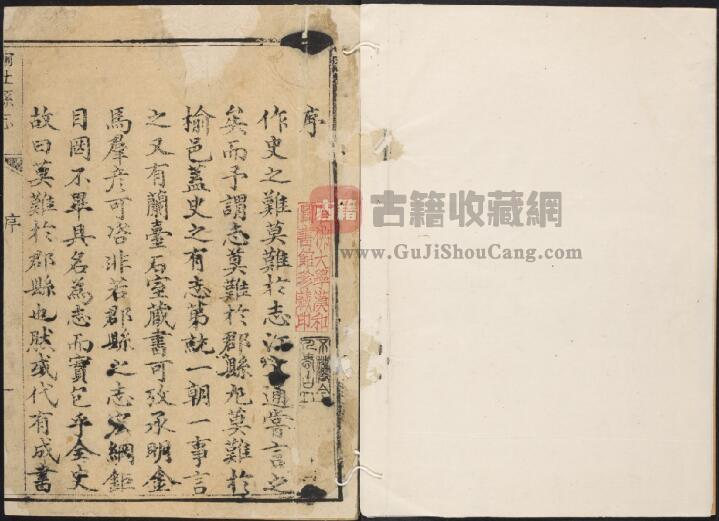 序
作史之難莫難於志江文通嘗言之
矣而予謂志莫難於郡縣尤莫難於
榆邑蓋史之有志第統一朝一事言
之又有蘭臺石室藏書可攷承明金
馬羣彥可咨非若郡縣之志宏綱鉅
目罔不畢具名為志而實包乎全史
故曰莫難於郡縣也然或代有成書
榆社縣志
序
一
古籍
古籍收藏網
www.GuJiShouCang.com
大學漢和
圖書館珍藏印